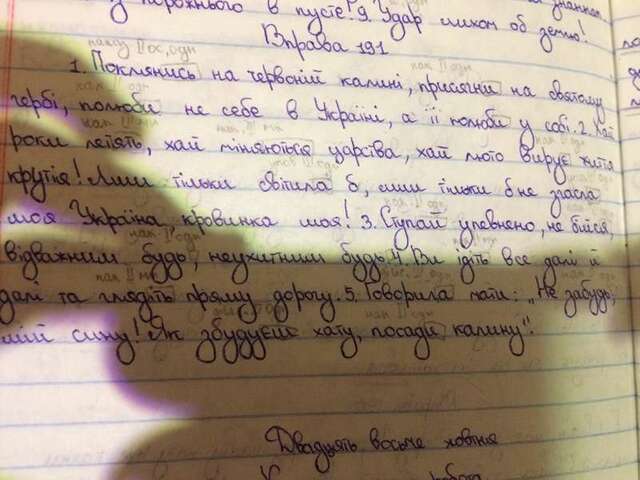 порожнього в пусте! 9. Удар лихом об землю!
Вправа 191
наказ ІІ ос, одн нак ІІ одн
1. Поклянись на червоній калині, присягни на святому
нак ІІ одн
гербі, полюби не себе в Україні, а її полюби у собі. 2. Хай
нак ІІІ мн нак. ІІІ мн
роки летять, хай міняються царства, хай люто вирує життя
крутія! Лиш тільки світила б, лиш тільки б не згасла
моя Україна кровинка моя! 3. Ступай упевнено, не бійся,
нак. ІІ одн
відважним будь, неухитним будь. 4. Ви ідіть все далі й
нак ІІ мн
далі та глядіть пряму дорогу. 5. Говорила мати: „Не забудь,
нак ІІ одн
мій сину! Як збудуєш хату, посади калину".
Двадцять восьме жовтня
робота